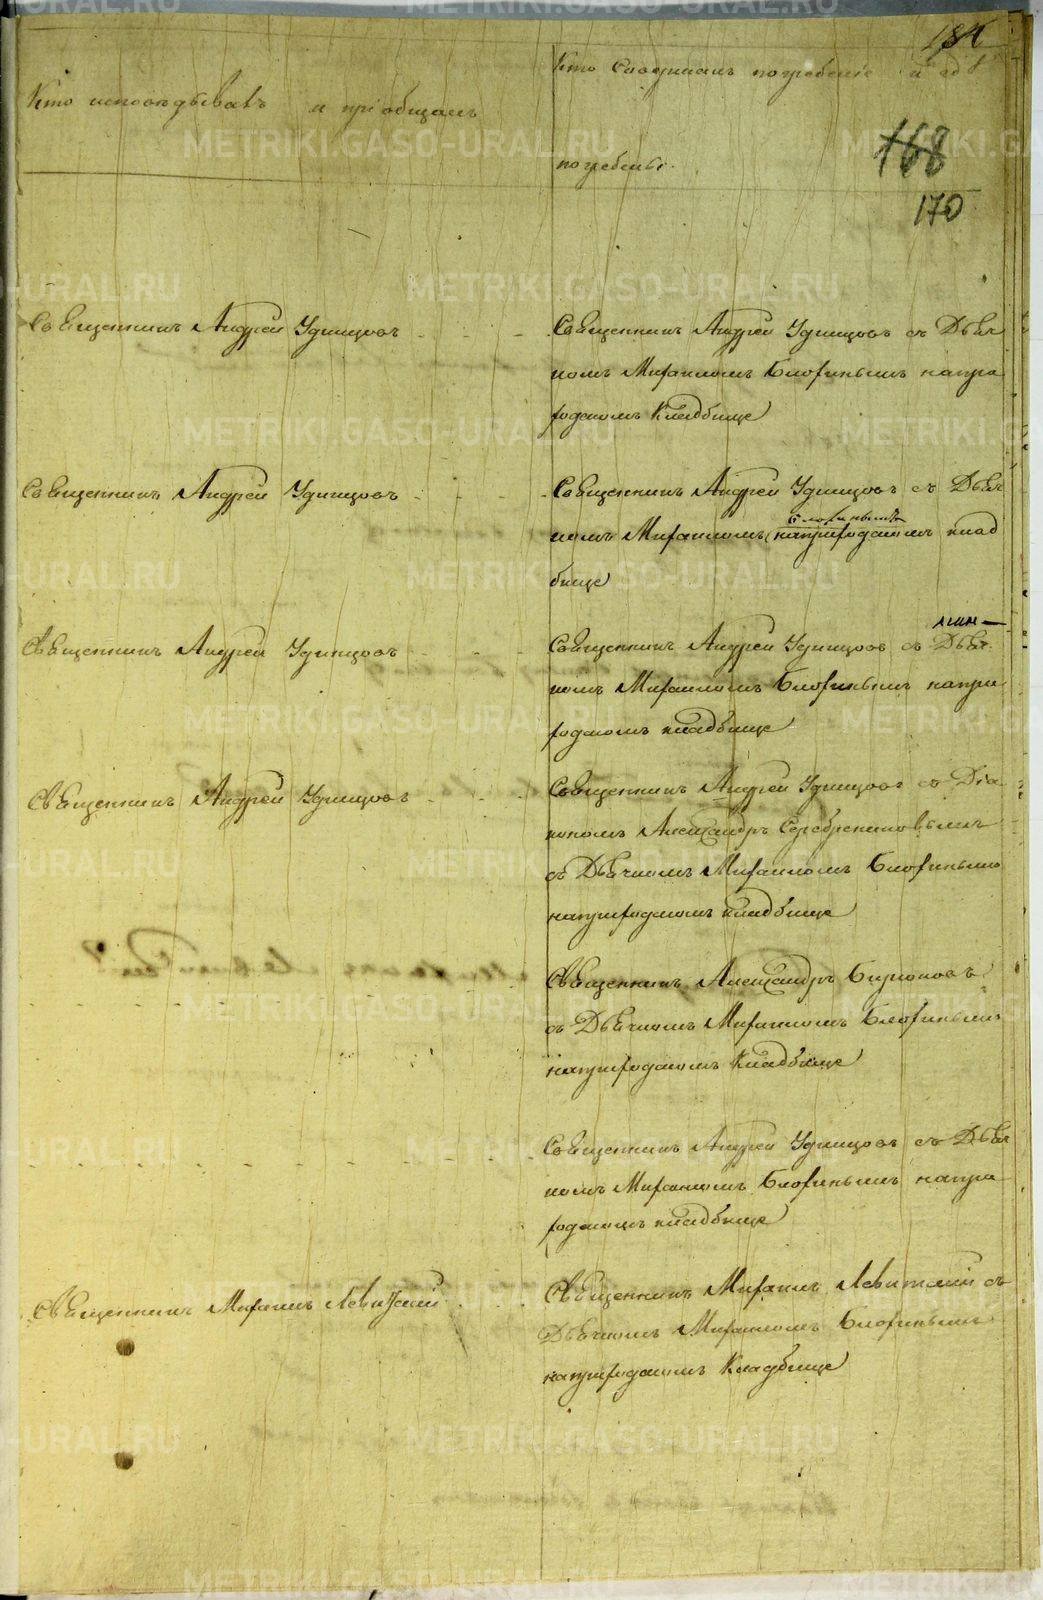 184
Кто исповѣдывалъ и пріобщалъ
Кто Совершалъ погребеніе и гдѣ
погребены.
168
170
Священникъ Андрей Удинцовъ
Священникъ Андрей Удинцовъ съ Дьяч
комъ Михаиломъ напри
ходскомъ Кладбище
Священникъ Андрей Удинцовъ
Священникъ Андрей Удинцовъ съ Дьяч
комъ Михаиломъ наприходскомъ клад
бище
Священникъ Андрей Удинцовъ
Священникъ Андрей Удинцовъ съ Дьяч
комъ Михаиломъ напри
ходскомъ кладбище
Священникъ Андрей Удинцовъ
Священникъ Андрей Удинцовъ съ Діа
кономъ Александръ Серебрениковымъ
съ Дьячкомъ Михаиломъ
наприходскомъ кладбище
Священникъ Александръ Бирюковъ
съ Дьячкомъ Михаиломъ
наприходскомъ Кладбище
Священникъ Андрей Удинцовъ съ Дьяч
комъ Михаиломъ напри
ходскомъ кладбище
Священникъ Михаилъ Левитскій
Священникъ Михаилъ Левитскій съ
Дьячкомъ Михаиломъ
наприходскомъ Кладбище
METRIKI.GASO-URAL.RU